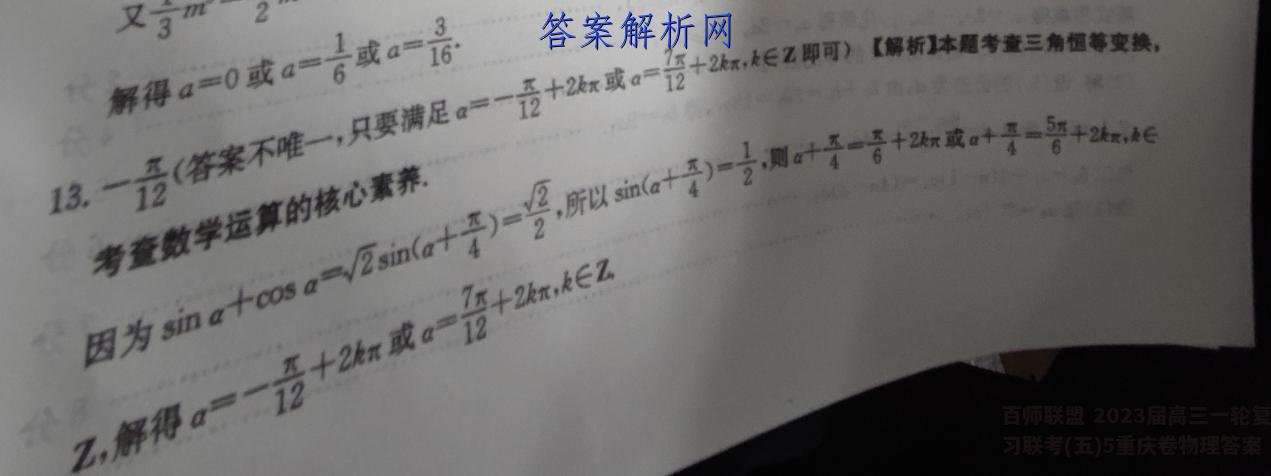 答案解析网
又 1/3 m
解得 a=0 或 a=1/6 或 a=3/16.
13. -π/12 (答案不唯一,只要满足 α=-π/12+2kπ 或 α=7π/12+2kπ,k∈Z 即可) 【解析】本题考查三角恒等变换,
考查数学运算的核心素养.
因为 sin α+cos α=√2sin(α+π/4)=√2/2,所以 sin(α+π/4)=1/2,则 α+π/4=π/6+2kπ 或 α+π/4=5π/6+2kπ,k∈
Z,解得 α=-π/12+2kπ 或 α=7π/12+2kπ,k∈Z.
百师联盟 2023届高三一轮复
习联考(五)5重庆卷物理答案